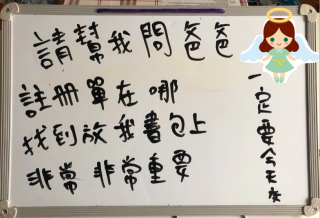 請幫我問爸爸
註冊單在哪
找到放我書包上
非常 非常重要
一定要今天